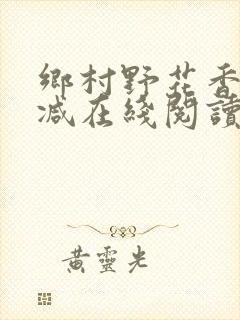 鄉村野花香
减在綫閱讀
黃靈光